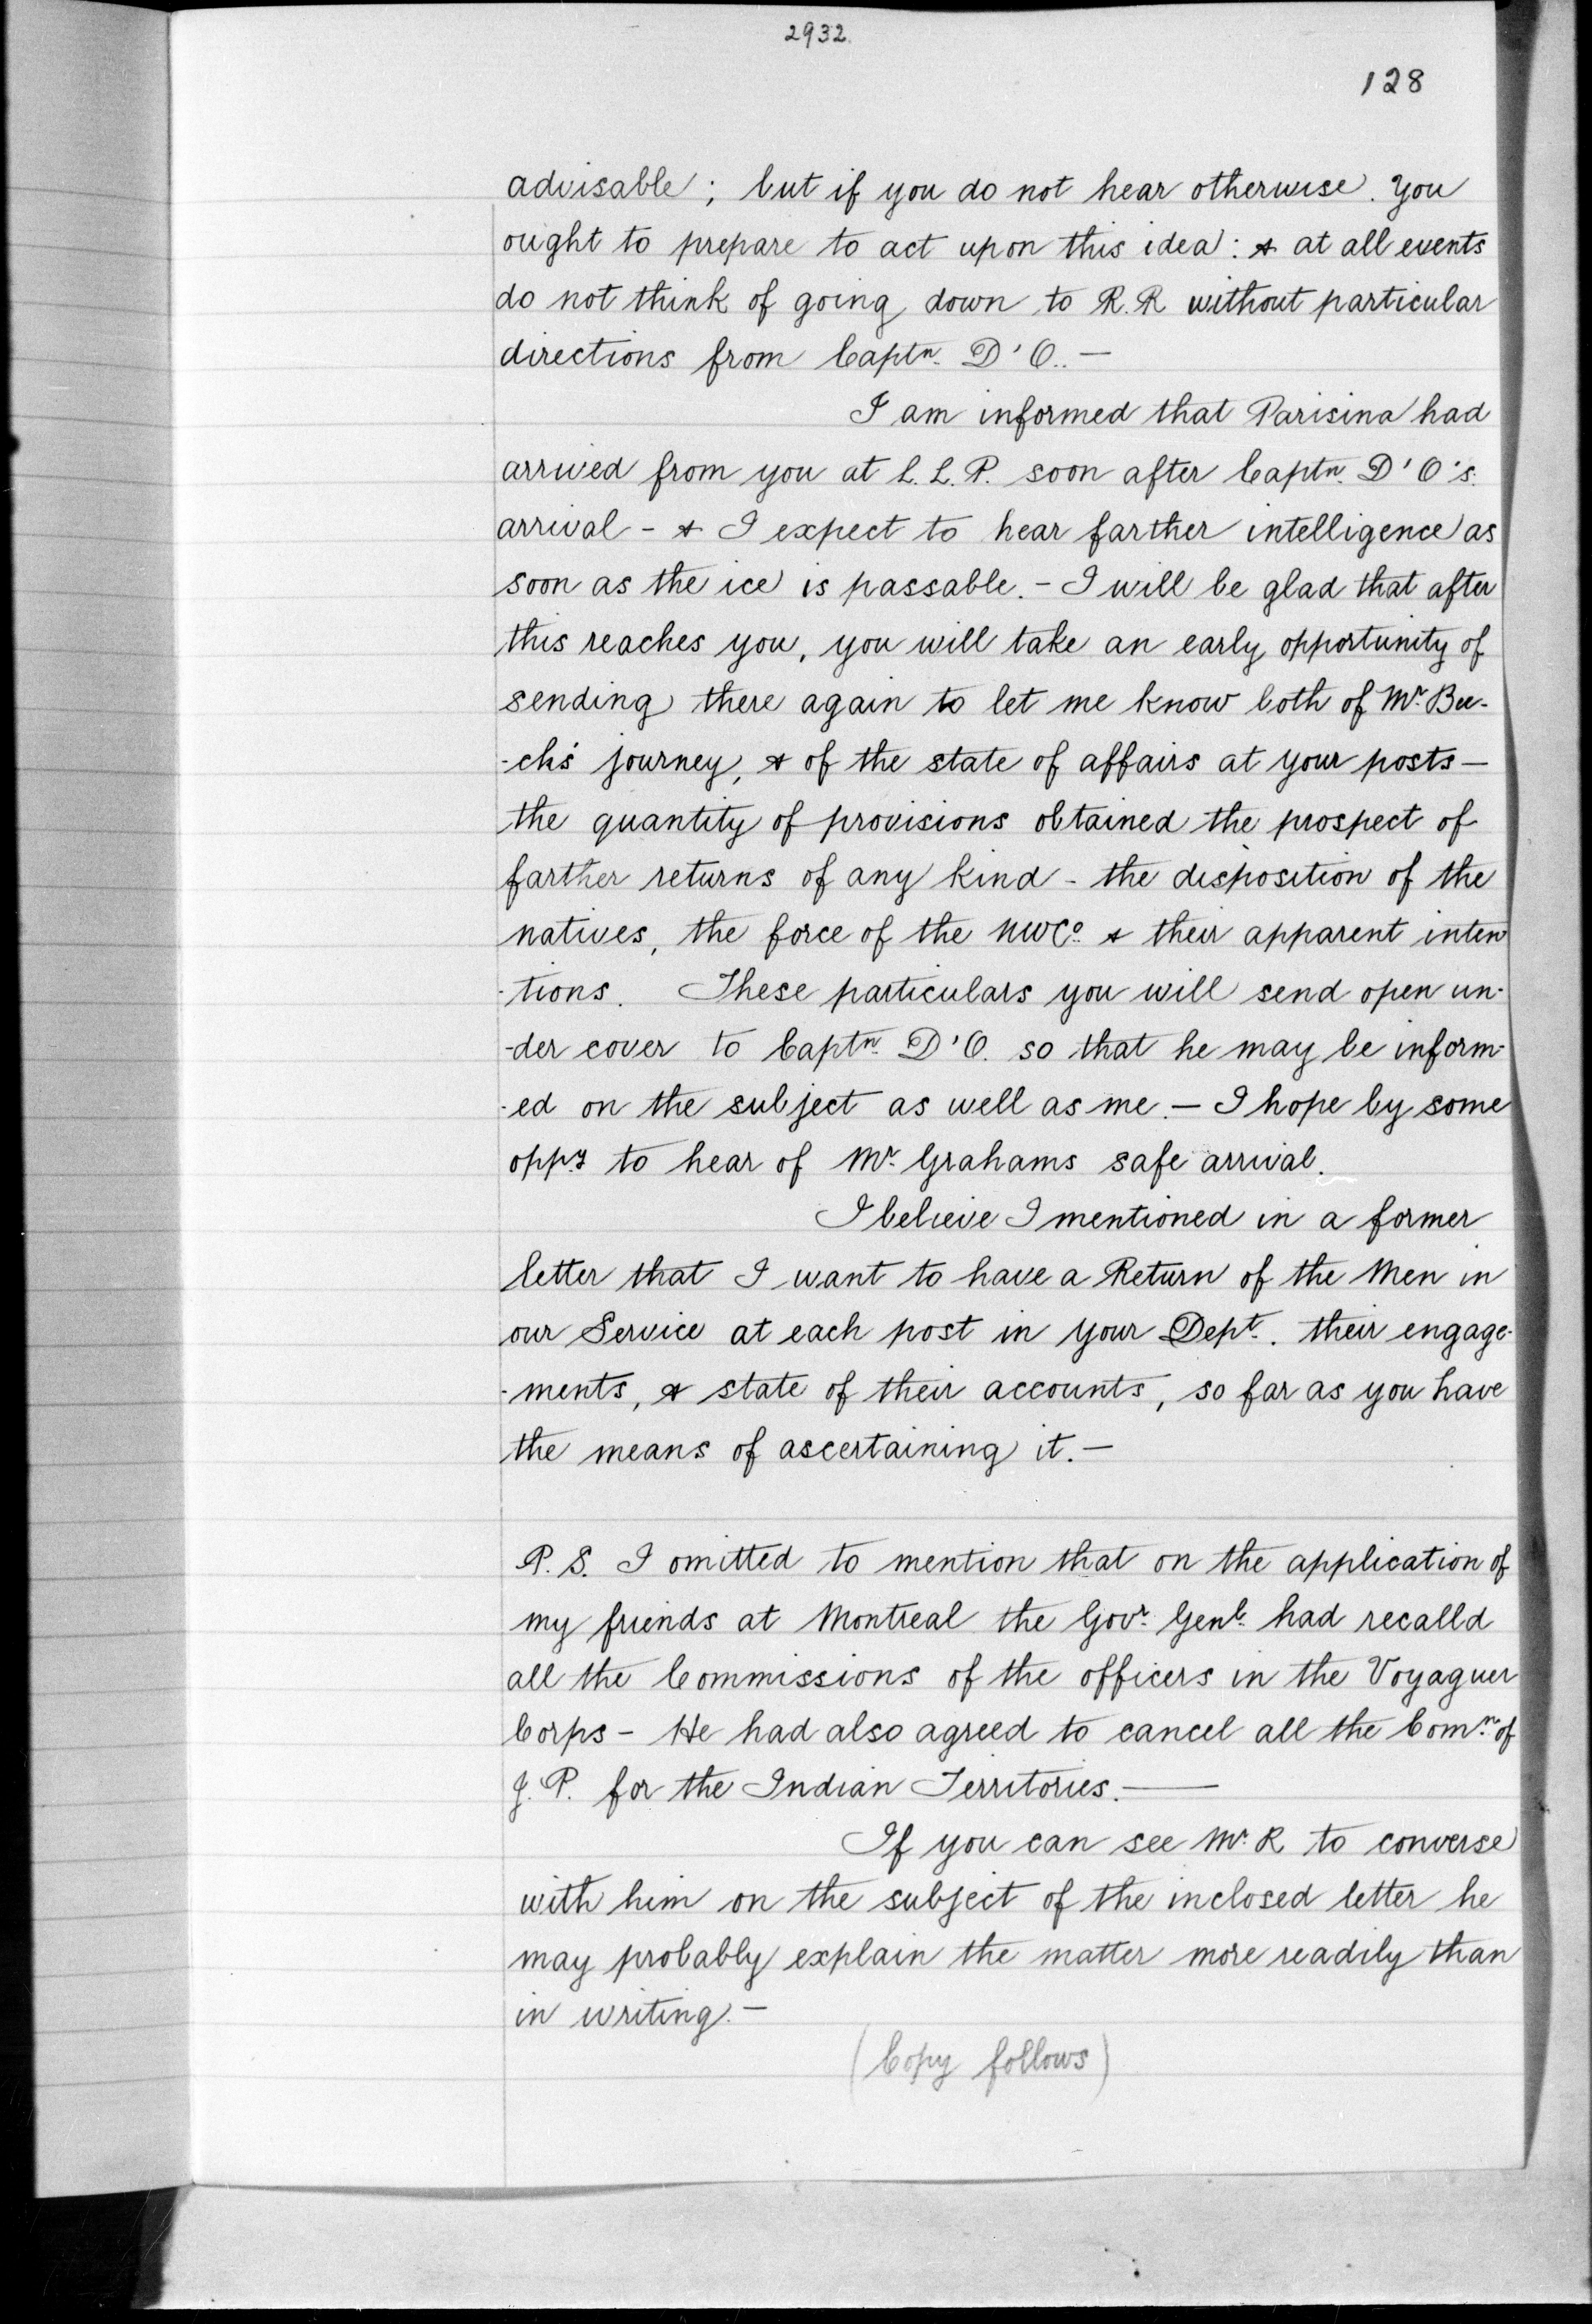 2932.
128
advisable; but if you do not hear otherwise. You
ought to prepare to act upon this idea: & at all events
do not think of going down to R.R without particular
directions from Captn. D'O.. —
I am informed that Parisina had
arrived from you at L. L. P. soon after Captn. D'O's.
arrival - & I expect to hear farther intelligence as
soon as the ice is passable. - I will be glad that after
this reaches you, you will take an early opportunity of
sending there again to let me know both of Mr. Bee-
-ch's journey, & of the state of affairs at your posts —
the quantity of provisions obtained the prospect of
farther returns of any kind - the disposition of the
natives, the force of the NWCo. & their apparent inten
-tions. These particulars you will send open un-
-der cover to Captn. D'O. so that he may be inform-
-ed on the subject as well as me. — I hope by some
oppy. to hear of Mr. Grahams safe arrival.
I believe I mentioned in a former
letter that I want to have a Return of the Men in
our Service at each post in your Dept. their engage-
-ments, & state of their accounts, so far as you have
the means of ascertaining it. —
P. S. I omitted to mention that on the application of
my friends at Montreal the Govr. Genl. had recalld
all the Commissions of the officers in the Voyaguer
Corps - He had also agreed to cancel all the Comn. of
J. P. for the Indian Territories. —
If you can see Mr. R to converse
with him on the subject of the inclosed letter he
may probably explain the matter more readily than
in writing. —
(Copy follows)